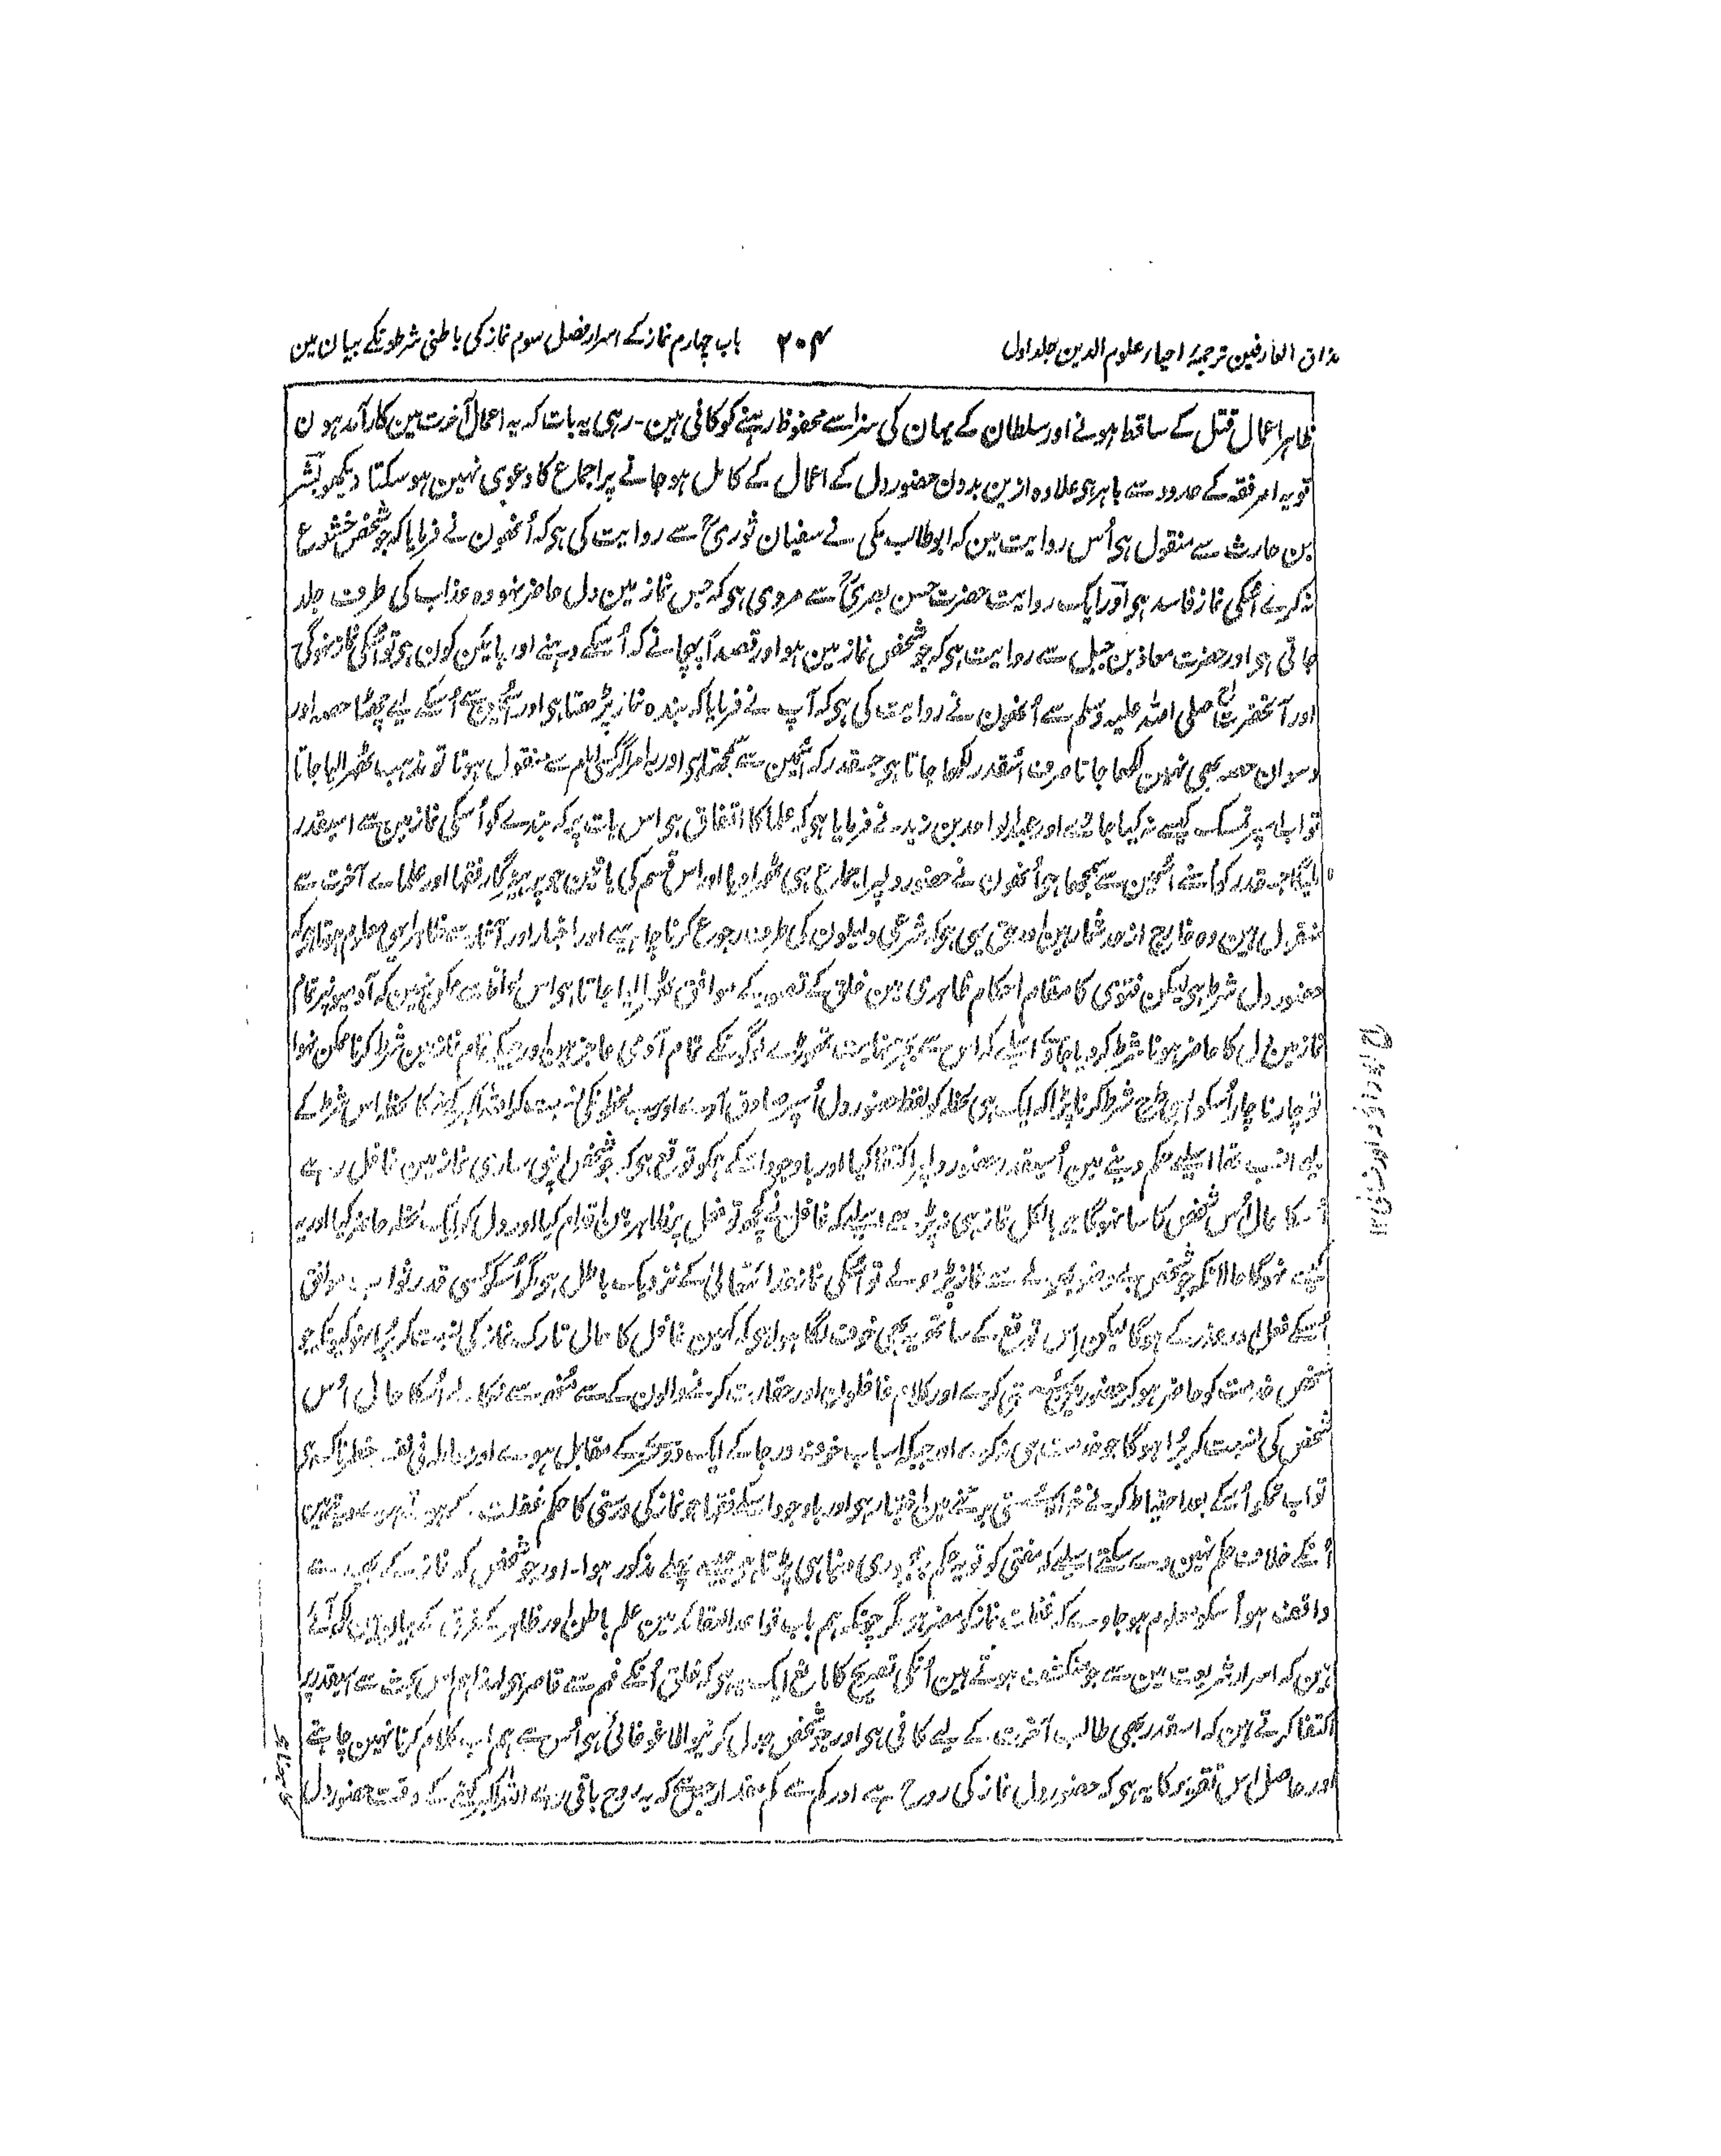 مذاق العارفین ترجمۂ احیاء علوم الدین جلد اول ۲۰۴ باب چہارم نماز کے اسرار فصل سوم نماز کی باطنی شرطونکے بیان مین
ظاہر اعمال قتل کے ساقط ہونے اور سلطان کے یہان کی سزا سے محفوظ رہنے کو کافی ہین ۔ رہی یہ بات کہ یہ اعمال آخرت مین کارآمد ہون
تو یہ امر فقہ کے حدود سے باہر ہی علاوہ ازین بدون حضور دل کے اعمال کے کامل ہو جانے پر اجماع کا دعوی نہین ہو سکتا دیکھو بشر
بن حارث سے منقول ہی اُس روایت مین کہ ابو طالب مکی نے سفیان ثوری رح سے روایت کی ہی کہ اُنھون نے فرمایا کہ جو شخص خشوع
نہ کرے اُسکی نماز فاسد ہی اور ایک روایت حضرت حسن بصری رح سے مروی ہی کہ جس نماز مین دل حاضر نہو وہ عذاب کی طرف جلد
جاتی ہی اور حضرت معاذ بن جبل سے روایت ہی کہ جو شخص نماز مین ہو اور قصداً پہچانے کہ اُسکے دہنے اور بائین کون ہی تو اُسکی نماز نہوگی
اور آنحضرت صلی اللہ علیہ وسلم سے اُنھون نے روایت کی ہی کہ آپ نے فرمایا کہ بندہ نماز پڑھتا ہی اور اُسمین سے اُسکے لیے چھٹا حصہ اور
دسوان حصہ بھی نہین لکھا جاتا صرف اُسقدر لکھا جاتا ہی جسقدر کہ اُسمین سے سمجھتا ہی اور یہ امر اگر کسی امام سے منقول ہوتا تو مذہب ٹھہرا لیا جاتا
تو اب اسپر تمسک کیسے نہ کیا جائے اور عبد الواحد بن زید نے فرمایا ہی کہ علما کا اتفاق ہی اس بات پر کہ بندے کو اُسکی نماز مین سے اسیقدر
ملیگا جسقدر کو اُسنے اُسمین سے سمجھا ہی اُنھون نے حضور دلپر اجماع ہی ٹھہرا دیا اور اس قسم کی باتین جو پرہیزگار فقہا اور علماے آخرت سے
منقول ہین وہ خارج از شمار ہین اور حق یہی ہی کہ شرعی دلیلون کی طرف رجوع کرنا چاہیے اور اخبار اور آثار سے ظاہر یہی معلوم ہوتا ہی کہ
حضور دل شرط ہی لیکن فتوی کا مقام احکام ظاہری مین خلق کے قصور کے موافق ٹھہرا لیا جاتا ہی اس لحاظ سے ممکن نہین کہ آدمیونپر تمام
نماز مین دل کا حاضر ہونا شرط کر دیا جائے اسلیے کہ اس سے بجز نہایت تھوڑے لوگونکے تمام آدمی عاجز ہین اور جبکہ تمام نماز مین شرط کرنا ممکن نہوا
تو چار ناچار اُسکو اس طرح شرط کرنا پڑا کہ ایک ہی لحظہ کو لفظ حضور دل اُسپر صادق آوے اور سب لحظونکی نسبت کر اللہ اکبر کہنے کا لحظہ اس شرط کے
لیے انسب تھا اسلیے حکم دینے مین اُسیقدر حضور دلپر اکتفا کیا اور باوجود اسکے ہمکو توقع ہی کہ جو شخص اپنی ساری نماز مین غافل رہے
اُسکا حال اُس شخص کا سا نہوگا جو بالکل نماز ہی نہ پڑھے اسلیے کہ غافل نے کچھ تو فعل پر ظاہر مین اقدام کیا اور دل کو ایک لحظہ حاضر کیا اور یہ
کیسے نہوگا حالانکہ جو شخص بے وضو بھولے سے نماز پڑھ لے تو اُسکی نماز خدا تعالیٰ کے نزدیک باطل ہی مگر اُسکو کسی قدر ثواب موافق
اُسکے فعل اور عذر کے ہوگا لیکن اس توقع کے ساتھ یہ بھی خوف لگا ہوا ہی کہ کہین غافل کا حال تارک نماز کی نسبت کر بُرا نہو کیونکہ جو
شخص خدمت کو حاضر ہو کر حضور مین سستی کرے اور کلام غافلون اور حقارت کرنے والون کے سے منھ سے نکالے اُسکا حال اُس
شخص کی نسبت کر بُرا ہوگا جو خدمت ہی نہ کرے اور جبکہ اسباب خوف و رجا کے ایک دوسرے کے مقابل ہوے اور معاملہ فی نفسہ خطرناک ہی
تو اب تمکو اُسکے بعد احتیاط کرنے خواہ سستی برتنے مین اختیار ہی اور باوجود اسکے فقہا جو نماز کی درستی کا حکم غفلت کے ہوتے ہوے دیتے ہین
اُنکے خلاف حکم نہین دے سکتے اسلیے کہ مفتی کو تو یہ حکم بمجبوری دینا ہی پڑتا ہی جیسے پہلے مذکور ہوا ۔ اور جو شخص کہ نماز کے بھید سے
واقف ہو اُسکو معلوم ہو جاوے کہ غفلت نماز کو مضر ہی مگر چونکہ ہم باب قواعد العقائد مین علم باطن اور ظاہر کے فرق کے بیان مین لکھ آئے
ہین کہ اسرار شریعت مین سے جو منکشف ہوتے ہین اُنکی تصریح کا مانع ایک یہ ہی کہ خلق اُنکے فہم سے قاصر ہی لہذا ہم اس بحث سے اسیقدر پر
اکتفا کرتے ہین کہ اسقدر بھی طالب آخرت کے لیے کافی ہی اور جو شخص جدل کرنیوالا غوغائی ہی اُس سے ہم اب کلام کرنا نہین چاہتے
اور حاصل اس تقریر کا یہ ہی کہ حضور دل نماز کی روح ہے اور کم سے کم مقدار جس سے کہ یہ روح باقی رہے اللہ اکبر کہنے کے وقت حضور دل